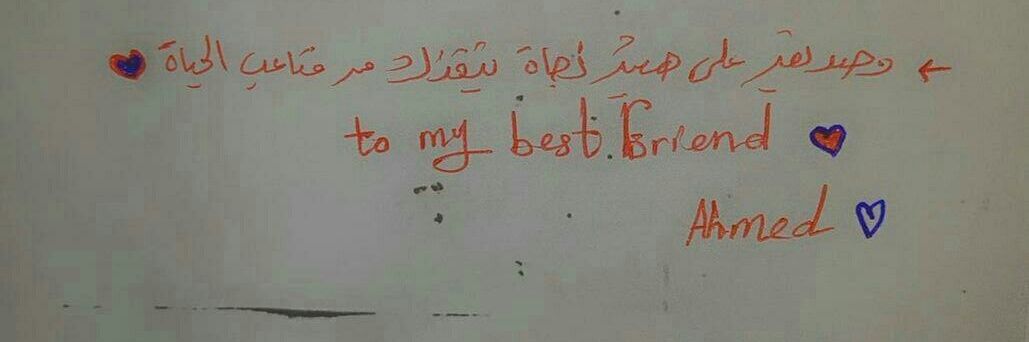 ← وصديق على هيئة نجاة ينقذك من متاعب الحياة
to my best friend
Ahmed